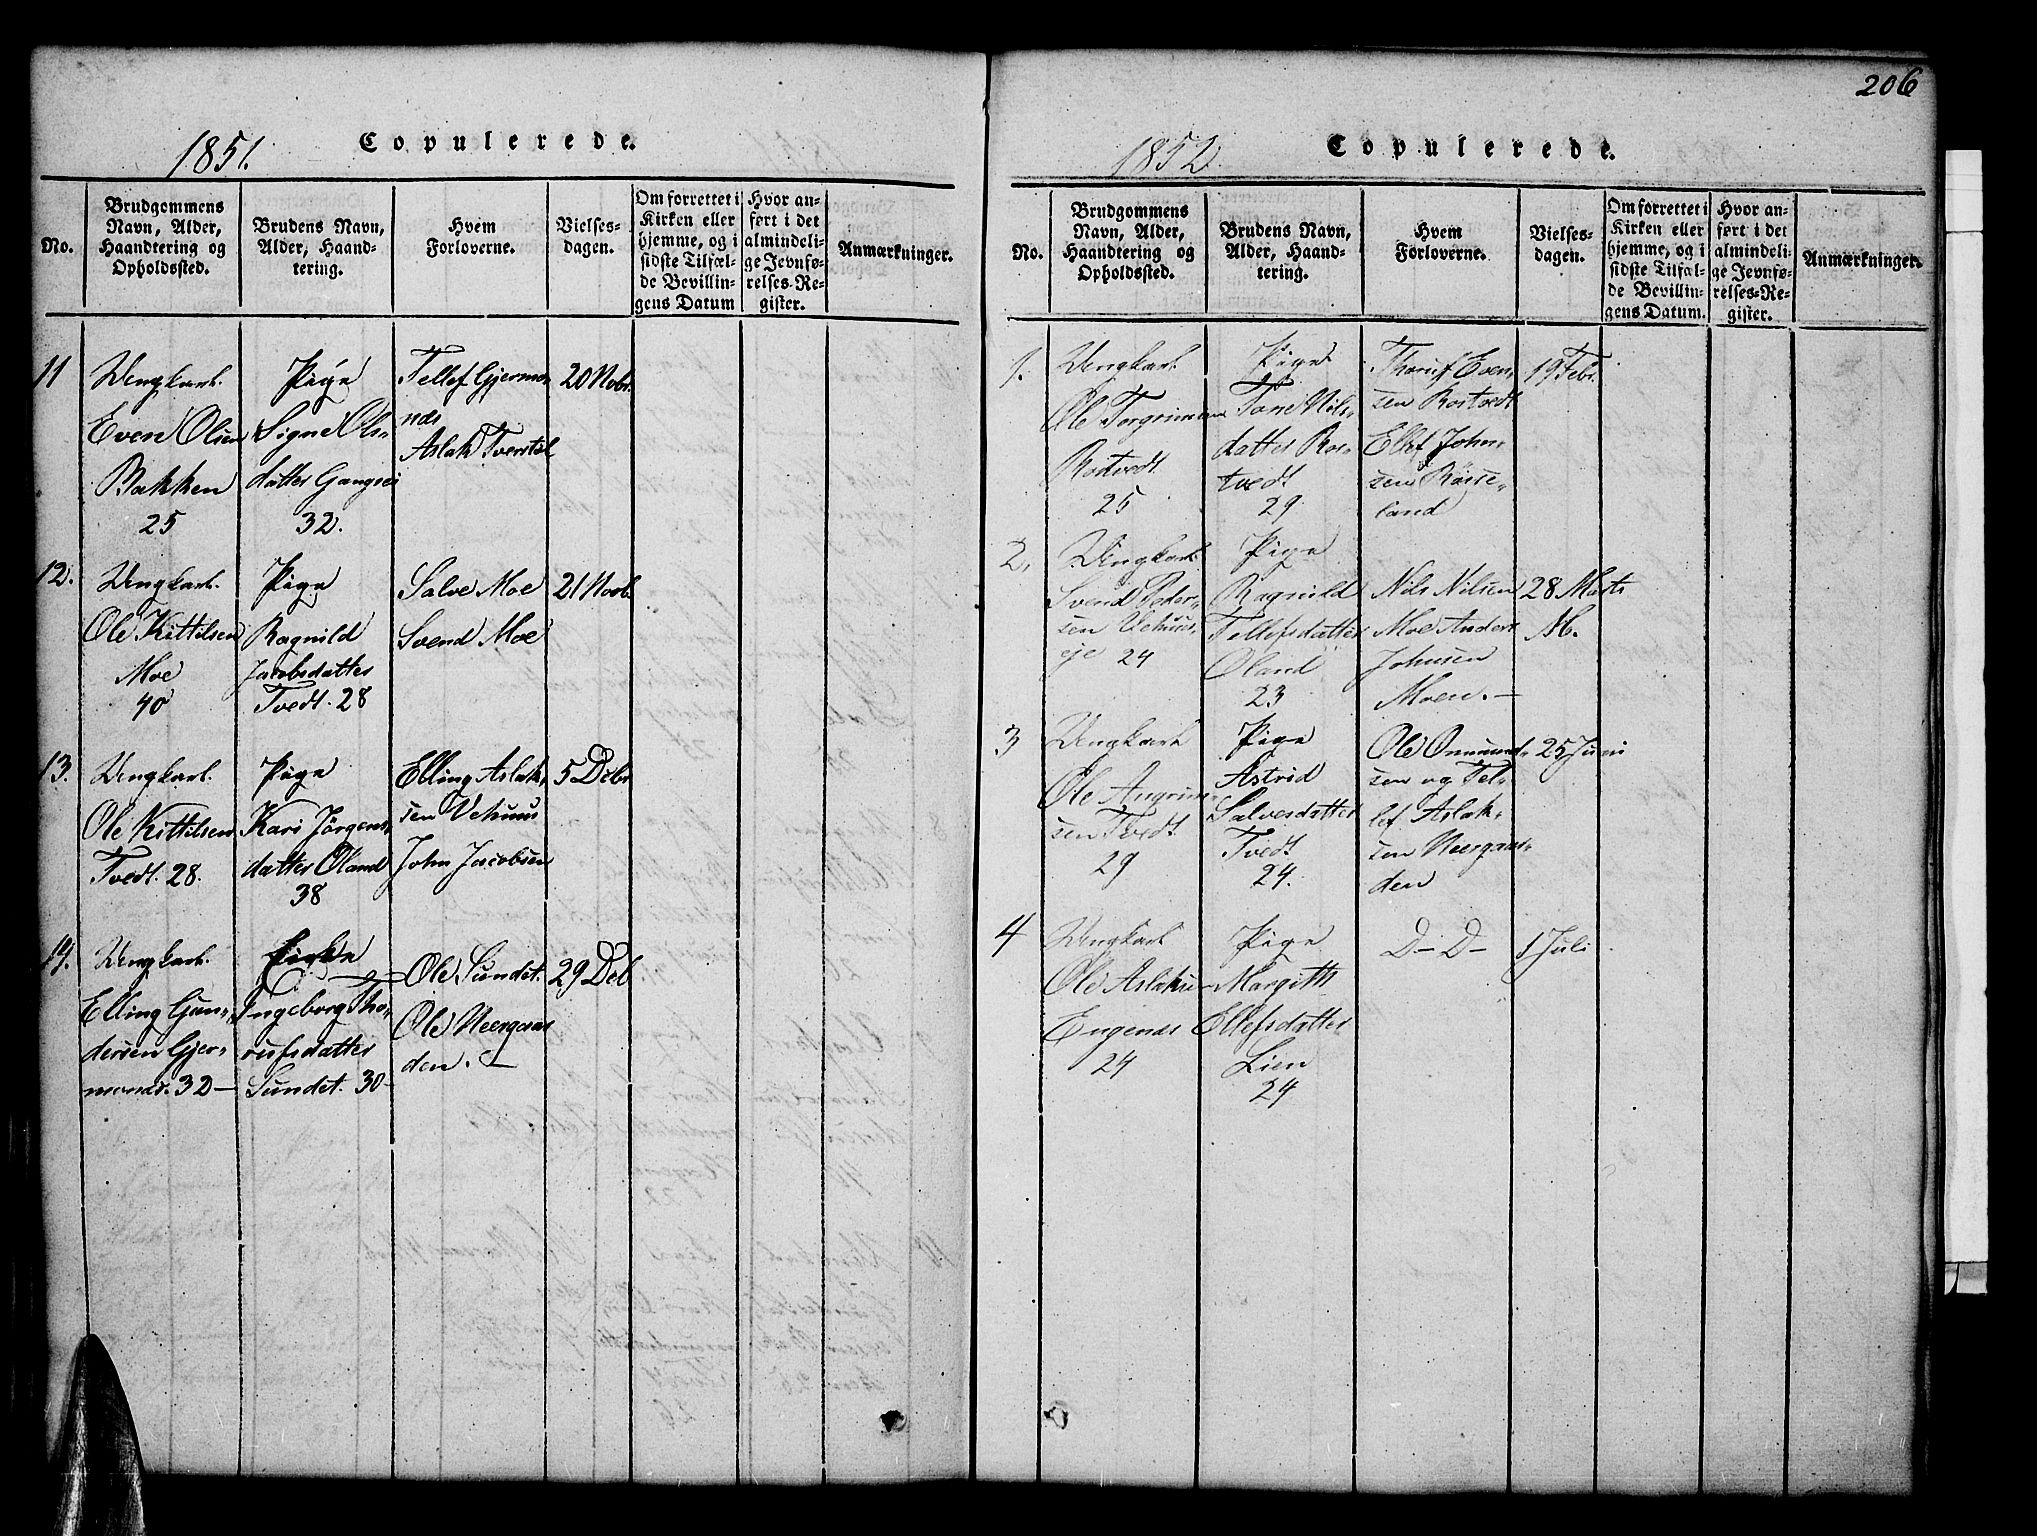 206
1851.
Copulerede.
No.
Brudgommens
Navn, Alder,
Haandtering og
Opholdssted.
Brudens Navn,
Alder, Haand-
tering.
Hvem
Forloverne.
Vielses-
dagen.
Om forrettet i
Kirken eller
hjemme, og i
sidste Tilfæl-
de Bevillin-
gens Datum
Hvor an-
ført i det
almindeli-
ge Jevnfø-
relses-Re-
gister.
Anmærkninger.
11
Ungkarl.
Even Olsen
Bakken
25
Pige
Signe Ols-
datter Gangsei
32.
Tellef Gjermo-
næs
Aslak
20 Nobr.
12.
Ungkarl.
Ole Kittilsen
Moe
40
Pige
Ragnild
Jacobsdatter
Tvedt. 28
Salve Moe
Svend Moe
21 Novb.
13.
Ungkarl.
Ole Kittilsen
Tvedt. 28.
Pige
Kari Jörgens-
datter Öland
38
Elling Aslak-
sen Vehuus
John Jacobsen
5 Debr
14.
Ungkarl.
Elling Gun-
dersen Gjer-
monæs. 32 —
Ingeborg Tho-
rufsdatter
Sundet. 30 -
Ole Sundet.
Ole Neergaar
den. —
29 Deb
1852.
Copulerede.
No.
Brudgommens
Navn, Alder,
Haandtering og
Opholdssted.
Brudens Navn,
Alder, Haand-
tering.
Hvem
Forloverne.
Vielses-
dagen.
Om forrettet i
Kirken eller
hjemme, og i
sidste Tilfæl-
de Bevillin-
gens Datum.
Hvor an-
ført i det
almindeli-
ge Jevnfø-
relses-Re-
gister.
Anmærkninger.
1.
Ungkarl.
Ole Torgrimsen
Rostvedt.
25
Pige
Tone Nils-
datter Ros-
tvedt
29
Thoruf Even-
sen Rostvedt
Ellef John-
sen Rösse-
land
19 Febr.
2.
Ungkarl.
Svend Peder-
sen Vehuus-
eje 24
Pige
Ragnild
Tellefsdatter
Öland
23
Nils Nilsen
Moe Anders
Johnsen
Moen. —
28 Marts
M.
3
Ungkarl
Ole Angrims-
sen Tvedt.
29
Pige
Astrid
Salvesdatter
Tvedt
24.
Ole Omund-
sen og Tel-
lef Aslak-
sen Neergaar-
den
25 Juni
4
Ungkarl
Ole Aslaksen
Engenæs
24
Pige
Margith
Ellefsdatter
Lien
24
D— D—
1 Juli